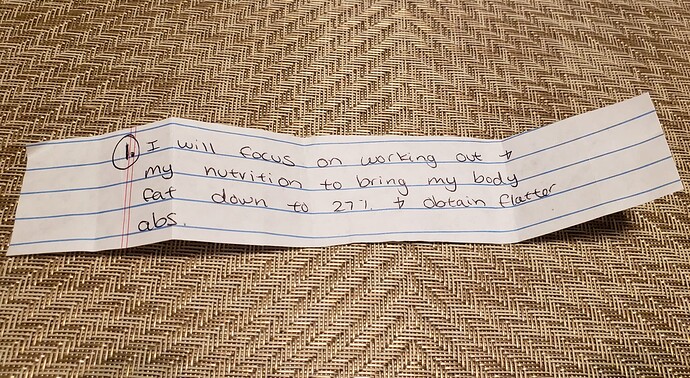 1. I will focus on working out &
my nutrition to bring my body
fat down to 27% & obtain flatter
abs.